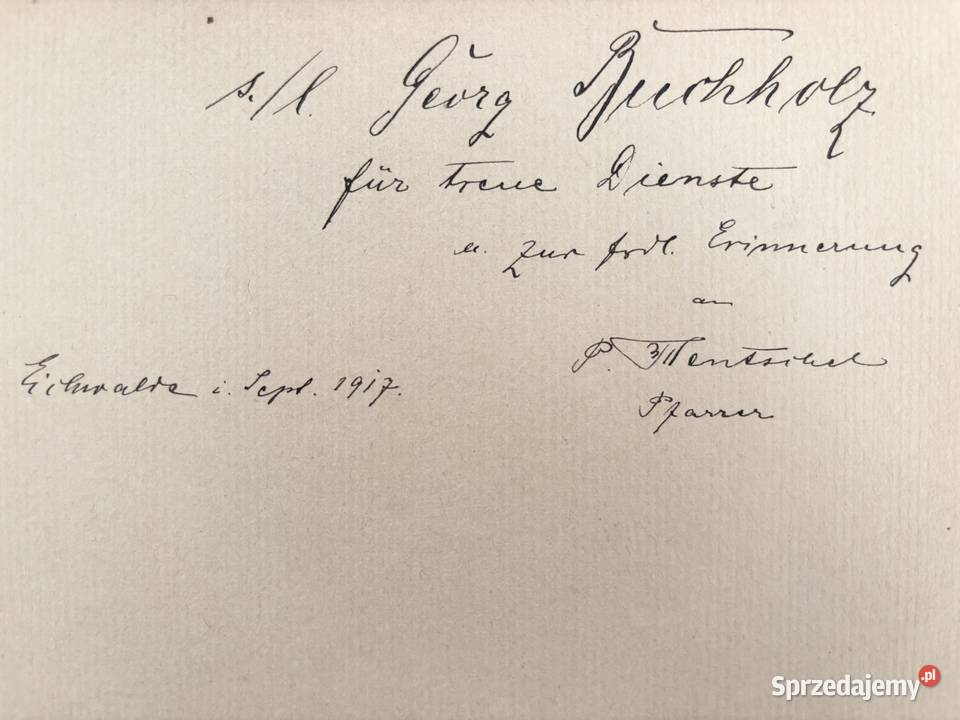 s./l. Georg Buchholz
für treue Dienste
u. zur frdl. Erinnerung
an
P. Mentschel
Eichwalde i. Sept. 1917.
Pfarrer
Sprzedajemy.pl